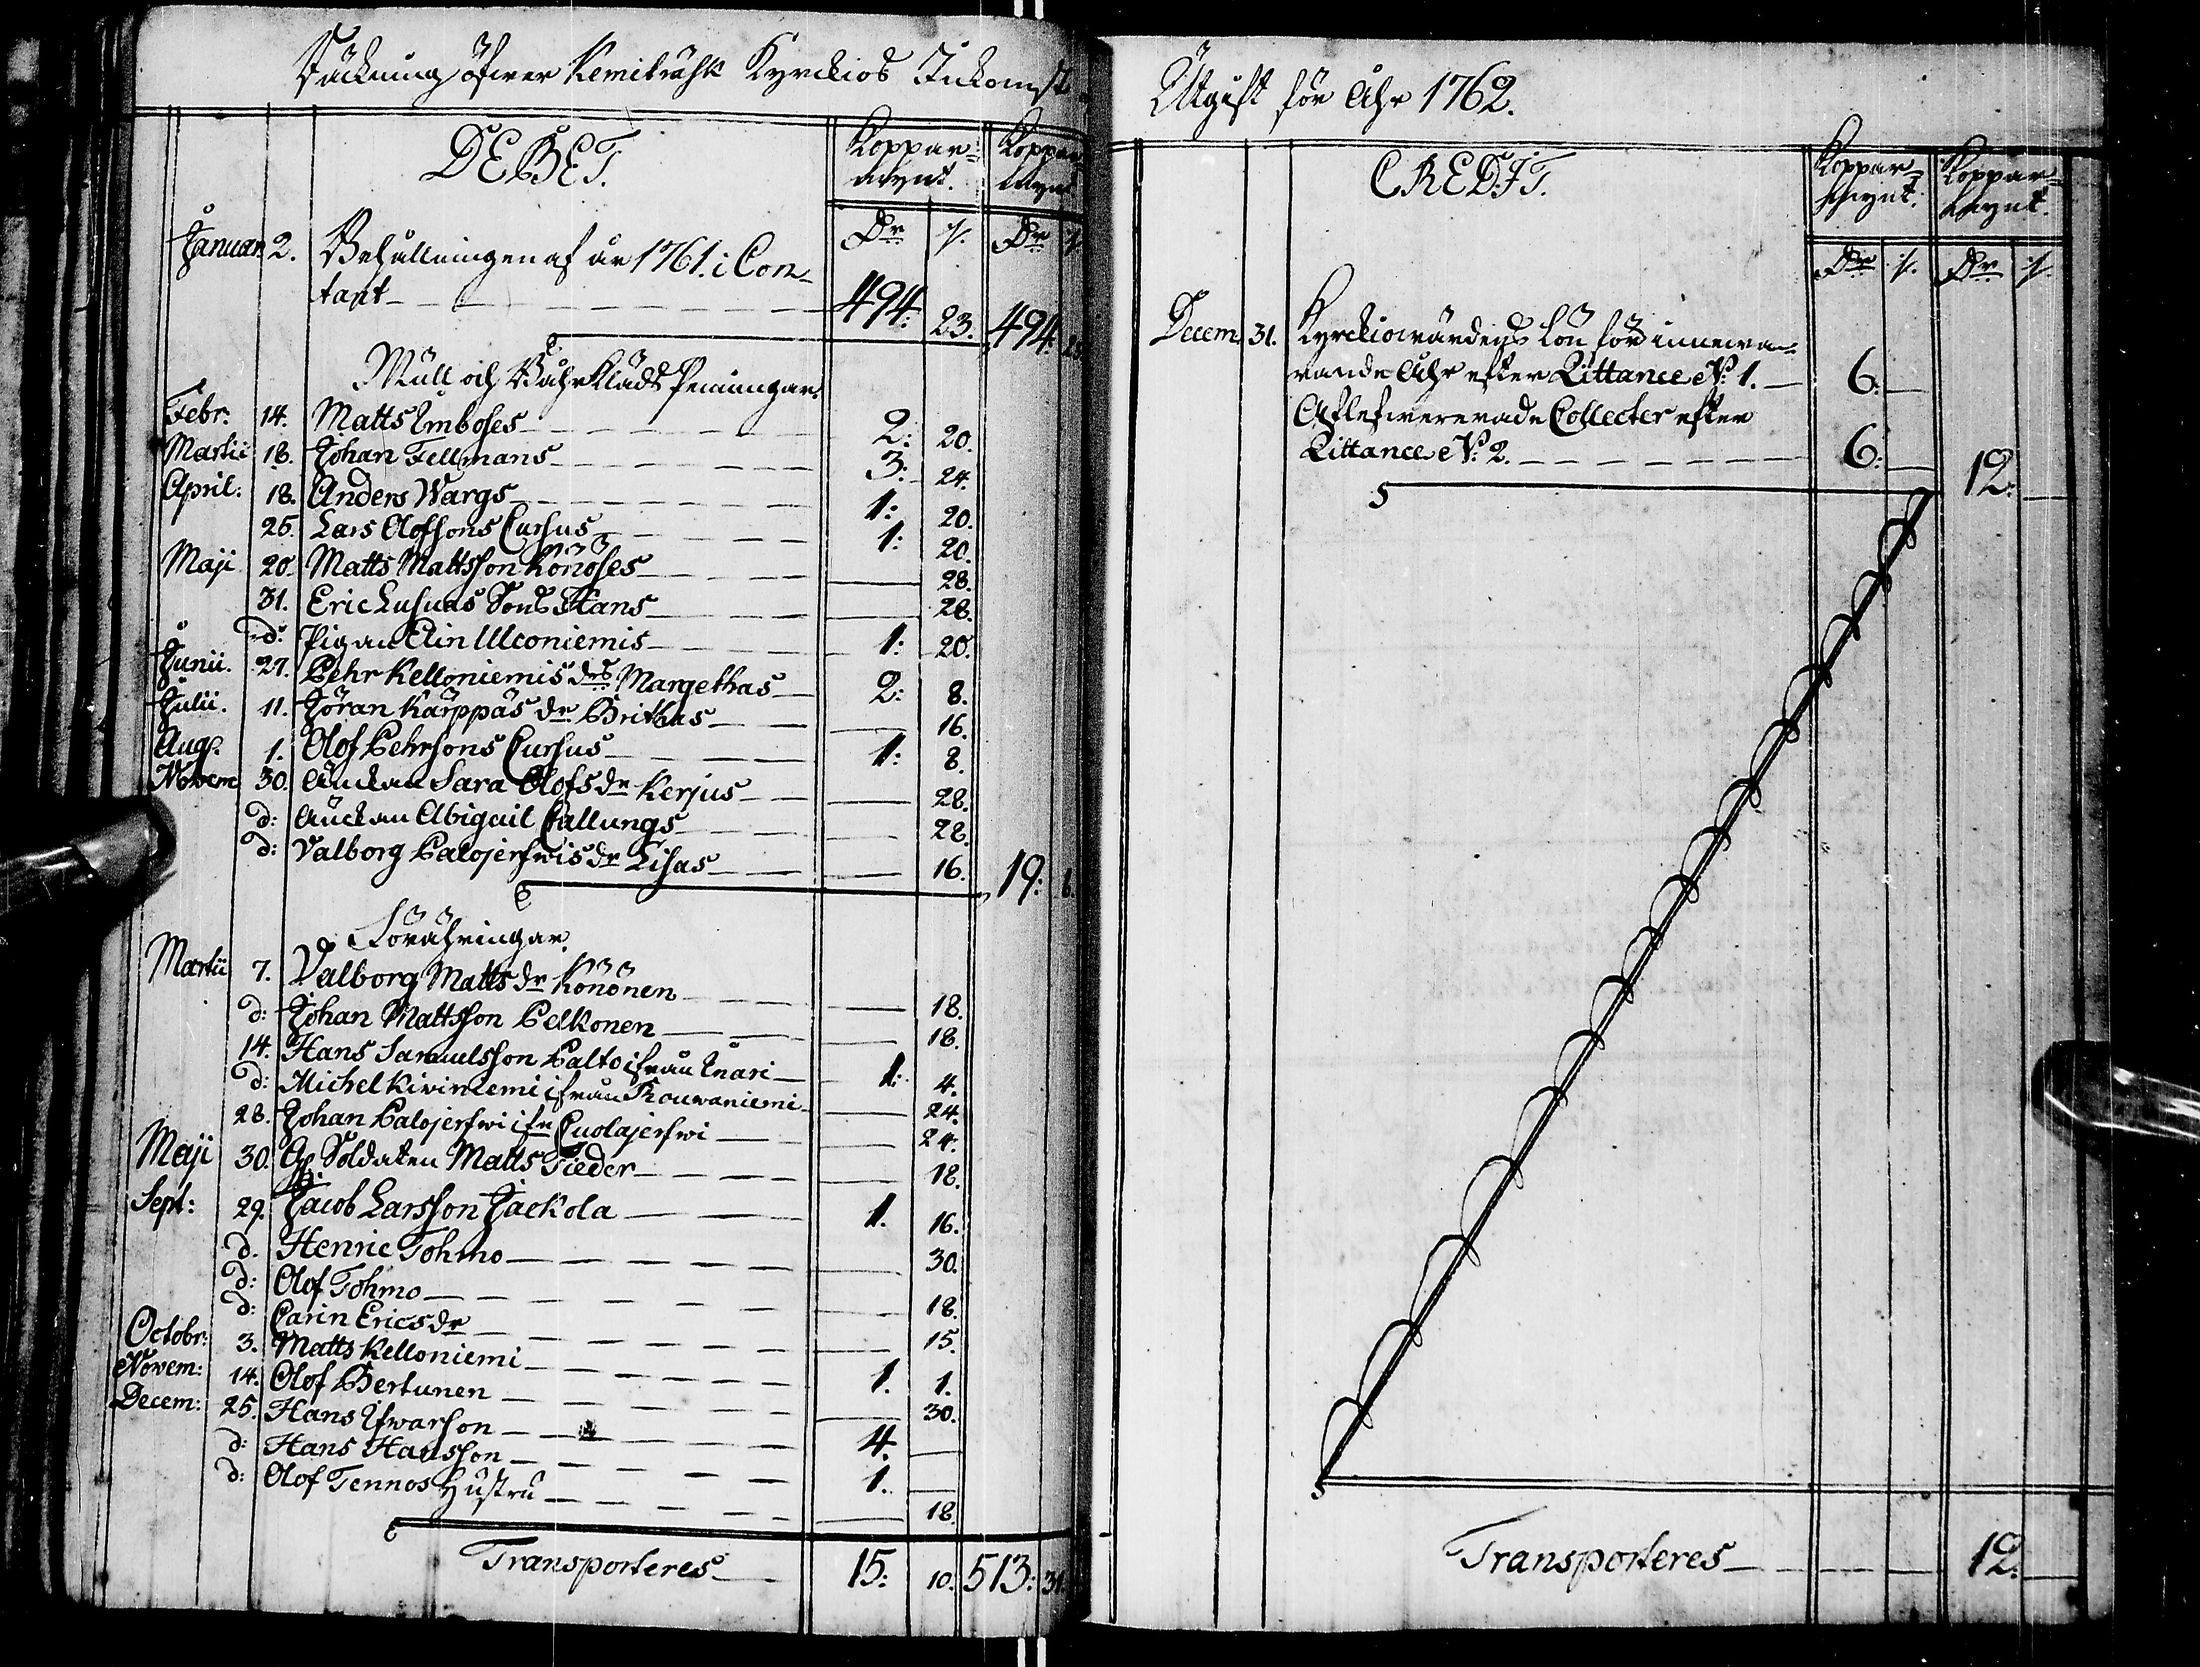 Räckning öfwer Kemiträsk Kyrckios Inkomst
DEBET.
Koppar=
mynt.
Koppar
mynt
Dr
s/.
Dr
s/.
Januar. 2. Behållningen af år 1761. i Con-
tant 494: 23. 494: 23.
Mull och Bahrklädes Penningar.
Febr: 14. Matts Imboses 2: 20.
Martii 18. Johan Fellmans 3: 24.
April: 18. Anders Wargs 1: 20.
25. Lars Olofsons Cursus 1: 20.
Maji 20. Matts Mattsson Könöses 28.
31. Eric Lusuas Sons Hans 28.
d: Pigan Elin Ulconiemis 1: 20.
Junii. 27. Pehr Kelloniemis drs Margethas 2: 8.
Julii. 11. Jöran Kärppäs dr Brithas 16.
Aug. 1. Olof Pehrsons Cursus 1: 8.
Novem 30. Änckan Sara Olofsdr Kerjus 28.
d: Änckan Abigail Callungs 28.
d: Valborg Palojerfwis dr Lisas 16. 19: 8.
Förähringar.
Martii 7. Valborg Mattsdr Könönen 18.
d: Johan Mattsson Pelkonen 18.
14. Hans Samuelsson Palto ifrån Enari 1: 4.
d: Michel Kiviniemi ifrån Rouvaniemi 24.
28. Johan Palojerfwi ifn Cuolajerfwi 24.
Maji 30. Soldaten Matts Fieder 18.
Sept: 29. Jacob Larsson Jaekola 1. 16.
d. Henric Tohmo 30.
d: Olof Tohmo 18.
d: Carin Ericsdr 15.
Octobr: 3. Matts Kelloniemi 1. 1.
Novem: 14. Olof Pertunen 30.
Decem: 25. Hans Ifwarson 4.
d: Hans Hansson 1.
d: Olof Tennos Hustru 18.
Transporteres 15: 10. 513: 31.
Utgift för Åhr 1762.
CREDIT.
Koppar=
mynt.
Koppar=
mynt.
Dr
s/.
Dr
s/.
Decem 31. Kyrckiovärdens Lön för innewa-
rande Åhr efter Qittance No: 1. 6:
Aflefwererade Collecter efter
Qittance No: 2. 6: 12:
Transporteres 12: